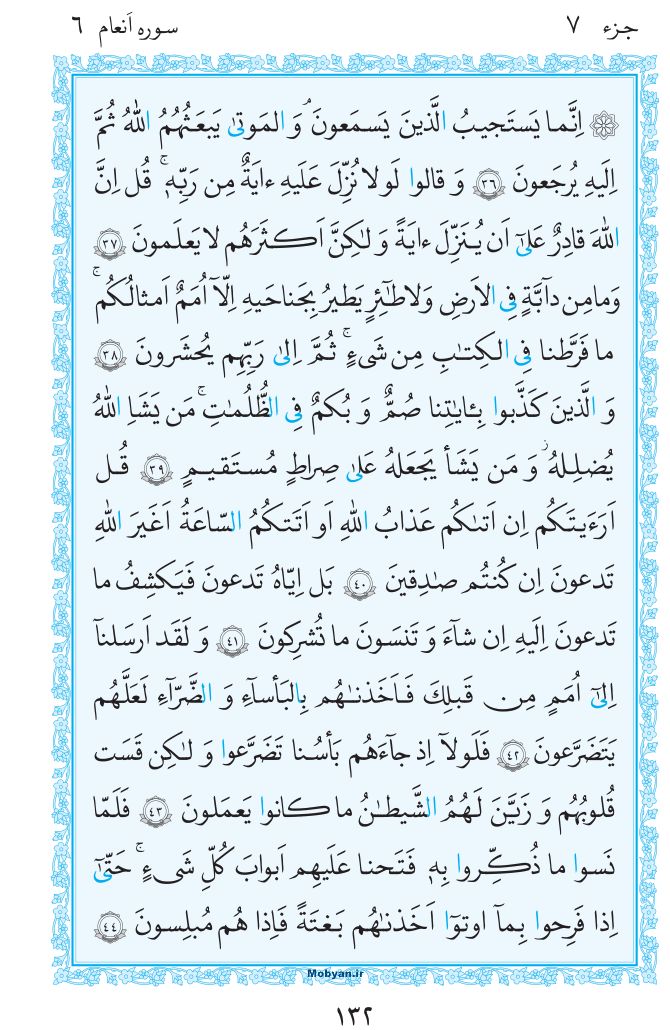 جزء ٧ سوره اَنعام ٦
۞ اِنَّما يَستَجيبُ الَّذينَ يَسمَعونَ ۘ وَ المَوتىٰ يَبعَثُهُمُ اللّٰهُ ثُمَّ
اِلَيهِ يُرجَعونَ ﴿٣٦﴾ وَ قالوا لَولا نُزِّلَ عَلَيهِ ءايَةٌ مِن رَبِّهٖ ۚ قُل اِنَّ
اللّٰهَ قادِرٌ عَلىٰٓ اَن يُنَزِّلَ ءايَةً وَ لٰكِنَّ اَكثَرَهُم لا يَعلَمونَ ﴿٣٧﴾
وَ ما مِن دآبَّةٍ فِى الاَرضِ وَ لا طٰٓئِرٍ يَطيرُ بِجَناحَيهِ اِلّآ اُمَمٌ اَمثالُكُم ۚ
ما فَرَّطنا فِى الكِتٰبِ مِن شَىءٍ ۚ ثُمَّ اِلىٰ رَبِّهِم يُحشَرونَ ﴿٣٨﴾
وَ الَّذينَ كَذَّبوا بِـٔايٰتِنا صُمٌّ وَ بُكمٌ فِى الظُّلُمٰتِ ۚ مَن يَشَاِ اللّٰهُ
يُضلِلهُ ۥ وَ مَن يَشَأ يَجعَلهُ عَلىٰ صِراطٍ مُستَقيمٍ ﴿٣٩﴾ قُل
اَرَءَيتَكُم اِن اَتىٰكُم عَذابُ اللّٰهِ اَو اَتَتكُمُ السّاعَةُ اَغَيرَ اللّٰهِ
تَدعونَ اِن كُنتُم صٰدِقينَ ﴿٤٠﴾ بَل اِيّاهُ تَدعونَ فَيَكشِفُ ما
تَدعونَ اِلَيهِ اِن شآءَ وَ تَنسَونَ ما تُشرِكونَ ﴿٤١﴾ وَ لَقَد اَرسَلنآ
اِلىٰٓ اُمَمٍ مِن قَبلِكَ فَاَخَذنٰهُم بِالبَأسآءِ وَ الضَّرّآءِ لَعَلَّهُم
يَتَضَرَّعونَ ﴿٤٢﴾ فَلَولآ اِذ جآءَهُم بَأسُنا تَضَرَّعوا وَ لٰكِن قَسَت
قُلوبُهُم وَ زَيَّنَ لَهُمُ الشَّيطٰنُ ما كانوا يَعمَلونَ ﴿٤٣﴾ فَلَمّا
نَسوا ما ذُكِّروا بِهٖ فَتَحنا عَلَيهِم اَبوابَ كُلِّ شَىءٍ ۚ حَتّىٰٓ
اِذا فَرِحوا بِمآ اوتوٓا اَخَذنٰهُم بَغتَةً فَاِذا هُم مُبلِسونَ ﴿٤٤﴾
Mobyan.ir
١٣٢